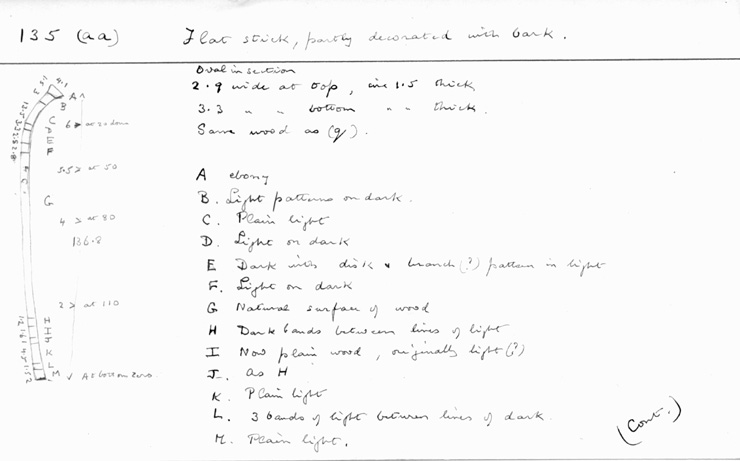 135 (aa) Flat stick, partly decorated with bark.
Oval in section
2.9 wide at top, 1.5 thick
3.3 " " bottom " " thick.
Same wood as (q).
A ebony
B. Light patterns on dark.
C. Plain light
D. Light on dark
E Dark with disk & branch (?) pattern in light
F. Light on dark
G Natural surface of wood
H Dark bands between lines of light
I Now plain wood, originally light (?)
J. as H
K. Plain light
L. 3 bands of light between lines of dark.
M. Plain light.
(Cont.)
A
B
C
D
E
F
5.5 > at 50
G
4 > at 80
136.8
2 > at 110
H
I
J
K
L
M